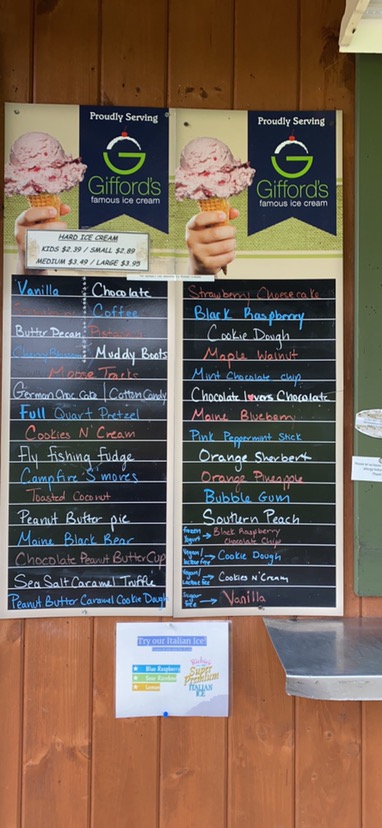 Proudly Serving
G
Gifford's
famous ice cream
HARD ICE CREAM
KIDS $2.39 / SMALL $2.89
MEDIUM $3.49 / LARGE $3.95
Vanilla Chocolate
Coffee
Butter Pecan Pistachio
Muddy Boots
Moose Tracks
German Choc Cake Cotton Candy
Full Quart Pretzel
Cookies N' Cream
Fly fishing fudge
Campfire S'mores
Toasted Coconut
Peanut Butter pie
Maine Black Bear
Chocolate Peanut Butter Cup
Sea Salt Caramel Truffle
Peanut Butter Caramel Cookie Dough
Proudly Serving
G
Gifford's
famous ice cream
Strawberry Cheesecake
Black Raspberry
Cookie Dough
Maple Walnut
Mint Chocolate chip
Chocolate lovers Chocolate
Maine Blueberry
Pink Peppermint Stick
Orange Sherbert
Orange Pineapple
Bubble Gum
Southern Peach
Frozen Yogurt → Black Raspberry
Chocolate Chip
Vegan/ Lactose Free → Cookie Dough
Vegan/ Lactose Free → Cookies N' Cream
Sugar Free → Vanilla
Try our Italian Ice!
Blue Raspberry
Sour Rainbow
Lemon
Richie's
Super
Premium
ITALIAN
ICE